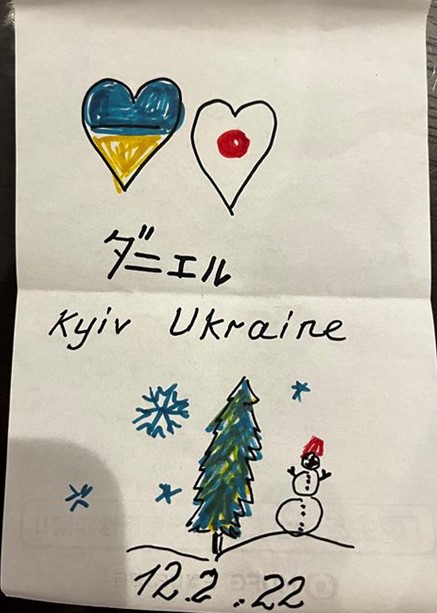 ダニエル
Kyiv Ukraine
12.2.22